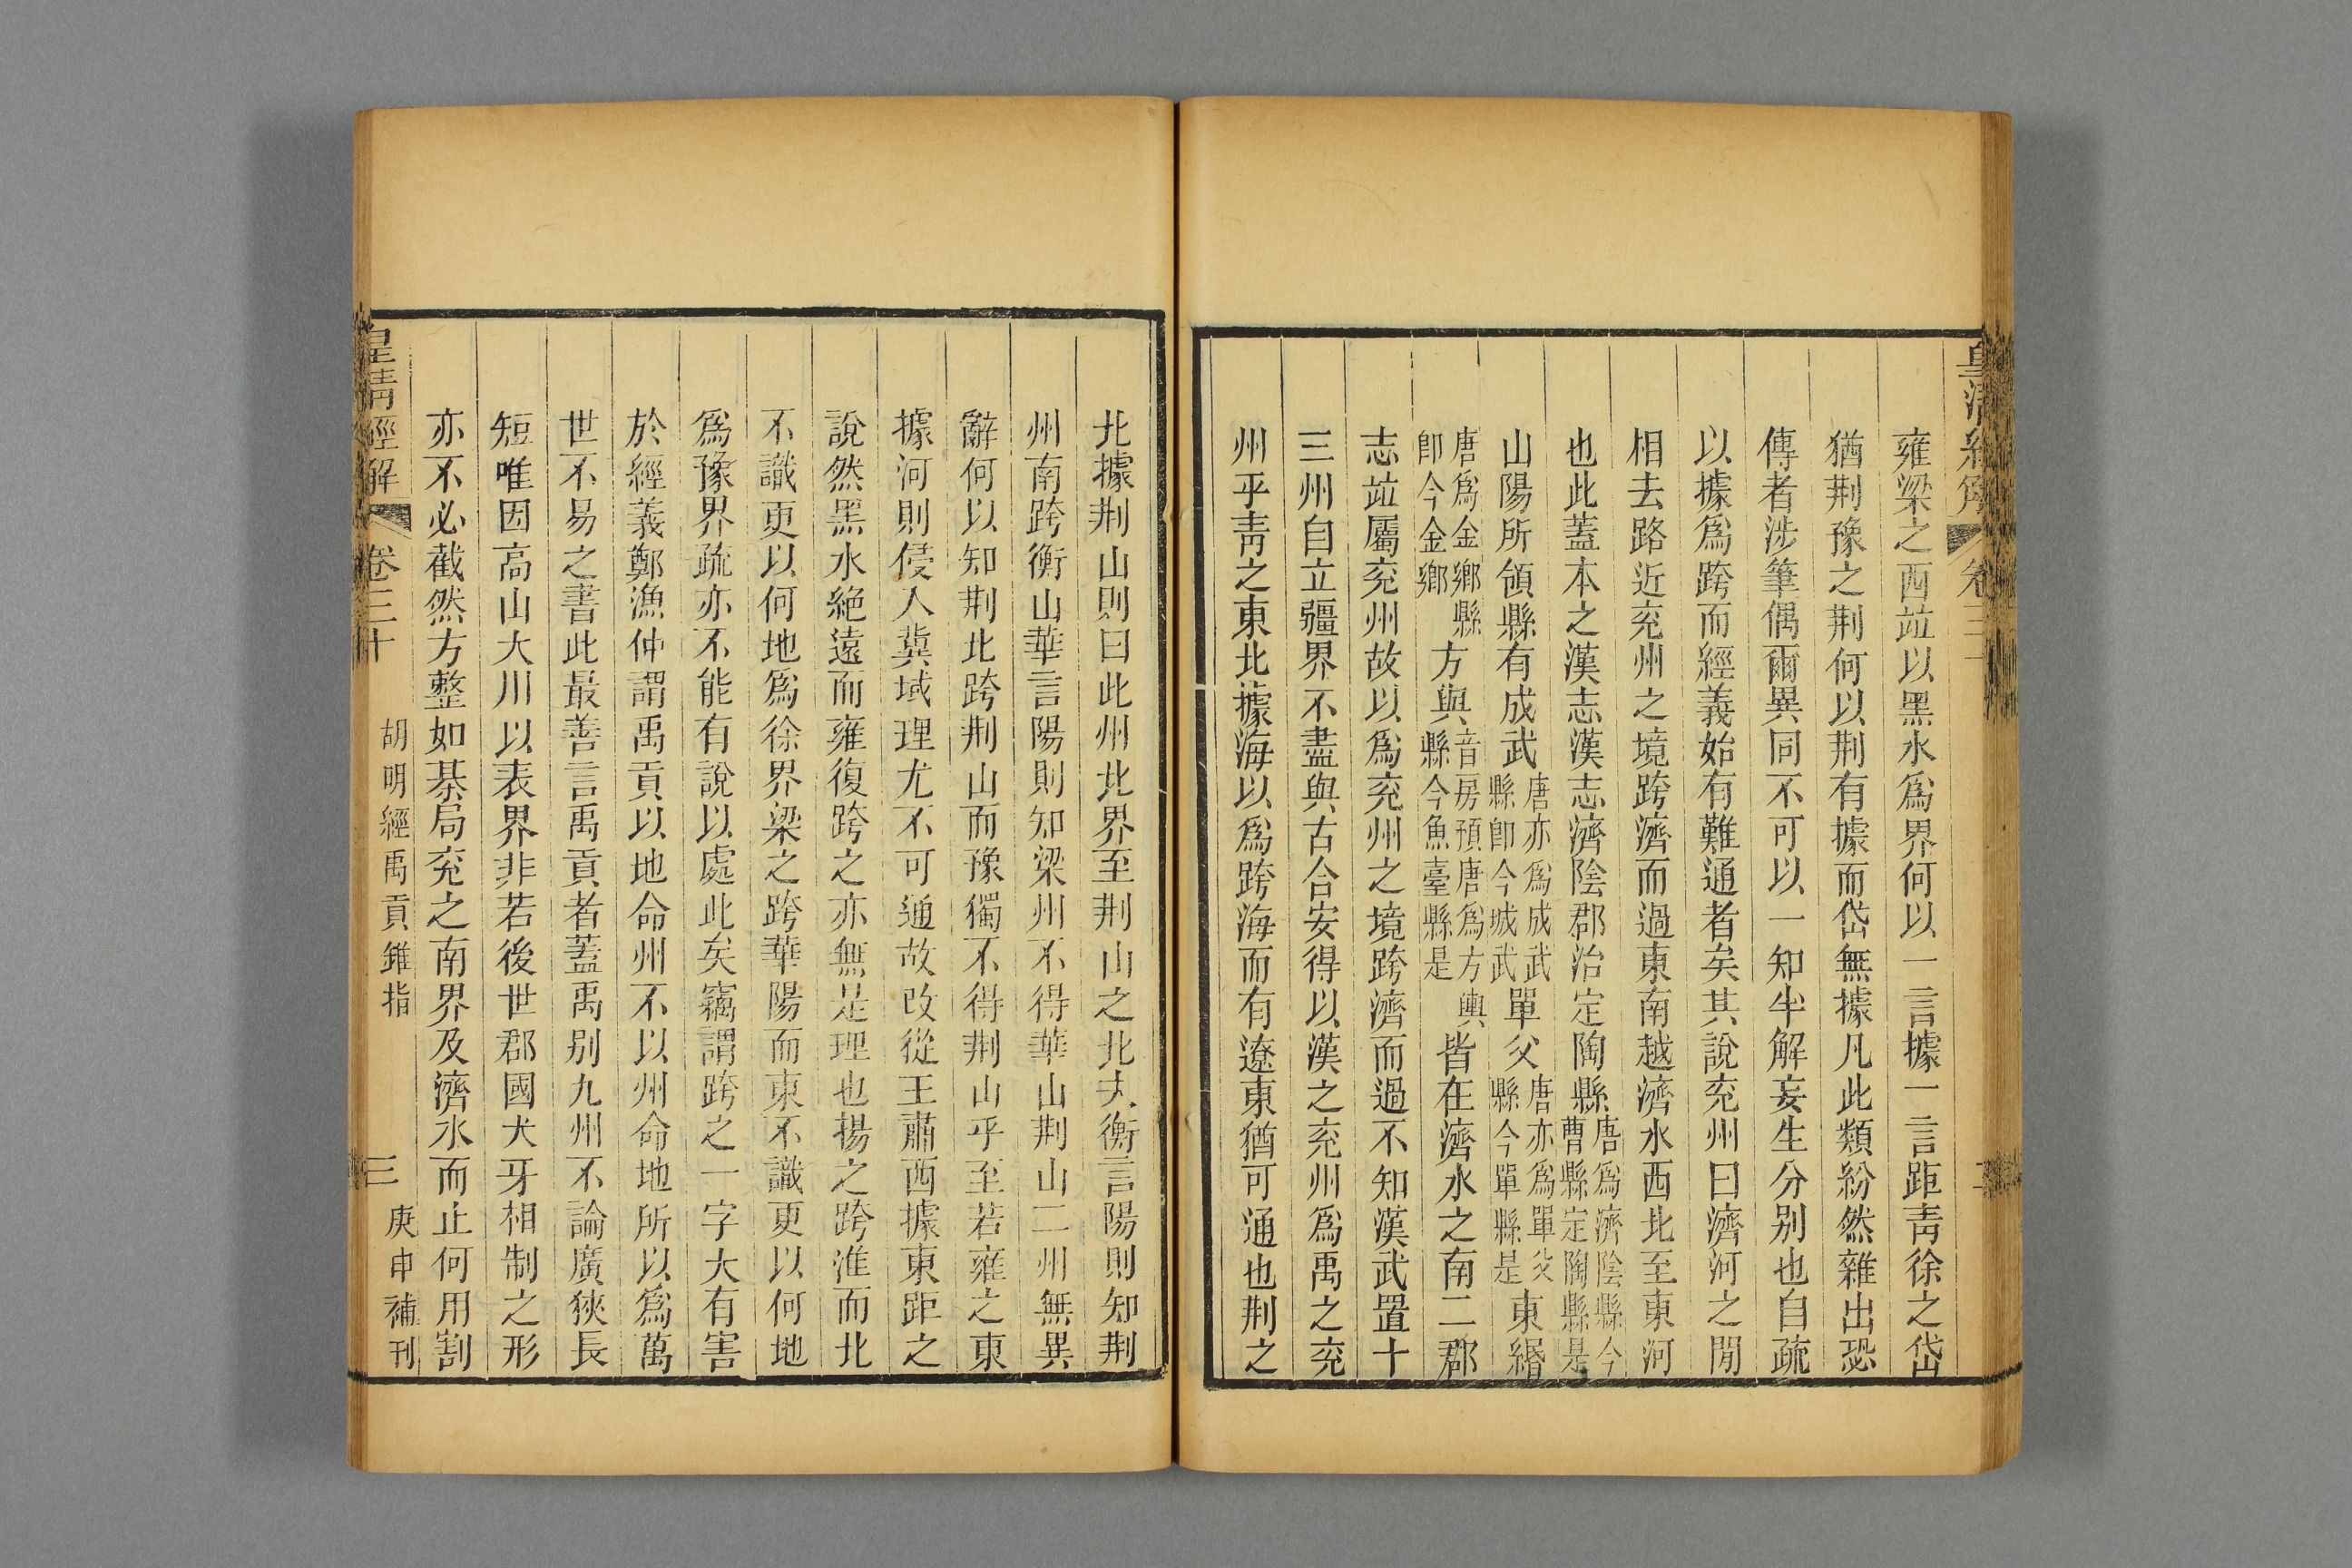 皇清經解 卷三十
雍梁之西竝以黑水爲界何以一言據一言距靑徐之岱
猶荆豫之荆何以荆有據而岱無據凡此類紛然雜出恐
傳者涉筆偶爾異同不可以一知半解妄生分别也自疏
以據爲跨而經義始有難通者矣其說兖州曰濟河之閒
相去路近兖州之境跨濟而過東南越濟水西北至東河
也此蓋本之漢志漢志濟陰郡治定陶縣唐爲濟陰縣今曹縣定陶縣是
山陽所領縣有成武唐亦爲成武縣卽今城武單父唐亦爲單父縣今單縣是東緡
唐爲金鄉縣卽今金鄉方與音房預唐爲方輿縣今魚臺縣是皆在濟水之南二郡
志竝屬兖州故以爲兖州之境跨濟而過不知漢武置十
三州自立疆界不盡與古合安得以漢之兖州爲禹之兖
州乎靑之東北據海以爲跨海而有遼東猶可通也荆之
北據荆山則曰此州北界至荆山之北夫衡言陽則知荆
州南跨衡山華言陽則知梁州不得華山荆山二州無異
辭何以知荆北跨荆山而豫獨不得荆山乎至若雍之東
據河則侵入冀域理尤不可通故改從王肅西據東距之
說然黑水絕遠而雍復跨之亦無是理也揚之跨淮而北
不識更以何地爲徐界梁之跨華陽而東不識更以何地
爲豫界疏亦不能有說以處此矣竊謂跨之一字大有害
於經義鄭漁仲謂禹貢以地命州不以州命地所以爲萬
世不易之書此最善言禹貢者蓋禹别九州不論廣狹長
短唯因高山大川以表界非若後世郡國犬牙相制之形
亦不必截然方整如棊局兖之南界及濟水而止何用割
皇淸經解 卷三十 胡明經禹貢錐指 三 庚申補刊